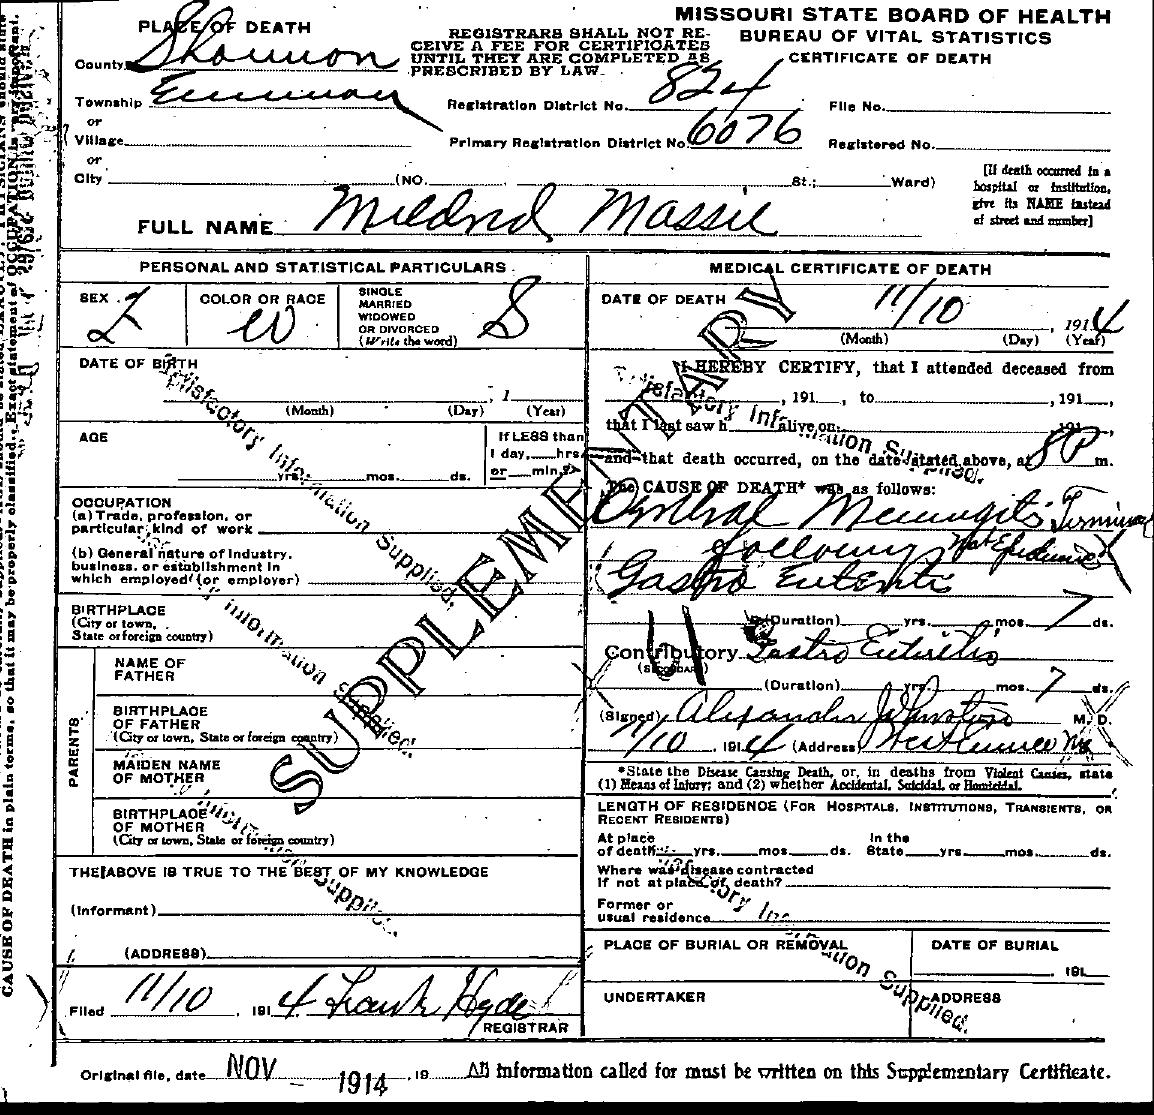 MISSOURI STATE BOARD OF HEALTH
BUREAU OF VITAL STATISTICS
CERTIFICATE OF DEATH
REGISTRARS SHALL NOT RE-
CEIVE A FEE FOR CERTIFICATES
UNTIL THEY ARE COMPLETED AS
PRESCRIBED BY LAW.
PLACE OF DEATH
County Shannon
Township
or
Village
or
City (NO. St.; Ward)
Registration District No. 824
File No.
Primary Registration District No. 6076
Registered No.
[If death occurred in a
hospital or institution,
give its NAME instead
of street and number]
FULL NAME Mildred Massie
PERSONAL AND STATISTICAL PARTICULARS
SEX F
COLOR OR RACE W
SINGLE
MARRIED
WIDOWED
OR DIVORCED
(Write the word) S
DATE OF BIRTH
, 1
(Month) (Day) (Year)
AGE
yrs. mos. ds.
If LESS than
1 day, hrs.
or min.?
OCCUPATION
(a) Trade, profession, or
particular kind of work
(b) General nature of Industry,
business, or establishment in
which employed (or employer)
BIRTHPLACE
(City or town,
State or foreign country)
PARENTS
NAME OF
FATHER
BIRTHPLACE
OF FATHER
(City or town, State or foreign country)
MAIDEN NAME
OF MOTHER
BIRTHPLACE
OF MOTHER
(City or town, State or foreign country)
THE ABOVE IS TRUE TO THE BEST OF MY KNOWLEDGE
(Informant)
(ADDRESS)
Filed 11/10, 1914 Frank Hyde
REGISTRAR
MEDICAL CERTIFICATE OF DEATH
DATE OF DEATH
11/10, 1914
(Month) (Day) (Year)
I HEREBY CERTIFY, that I attended deceased from
, 191 , to , 191 ,
that I last saw h alive on 191 ,
and that death occurred, on the date stated above, at 8P m.
The CAUSE OF DEATH* was as follows:
Meningitis Terminal
following Not Epidemic
Gastro Enteritis
(Duration) yrs. mos. 7 ds.
Contributory Gastro Enteritis
(SECONDARY)
(Duration) yrs. mos. 7 ds.
(Signed) Alexander Johnston M. D.
11/10, 1914 (Address) Mo
*State the Disease Causing Death, or, in deaths from Violent Causes, state
(1) Means of Injury; and (2) whether Accidental, Suicidal, or Homicidal.
LENGTH OF RESIDENCE (FOR HOSPITALS, INSTITUTIONS, TRANSIENTS, OR
RECENT RESIDENTS)
At place In the
of death yrs. mos. ds. State yrs. mos. ds.
Where was disease contracted
If not at place of death?
Former or
usual residence
PLACE OF BURIAL OR REMOVAL
DATE OF BURIAL
, 191
UNDERTAKER
ADDRESS
SUPPLEMENTARY
Satisfactory Information Supplied.
Satisfactory Information Supplied.
Information Supplied.
Information Supplied.
Original file, date NOV 1914, 19 All information called for must be written on this Supplementary Certificate.
CAUSE OF DEATH in plain terms, so that it may be properly classified. Exact statement of OCCUPATION is very important.